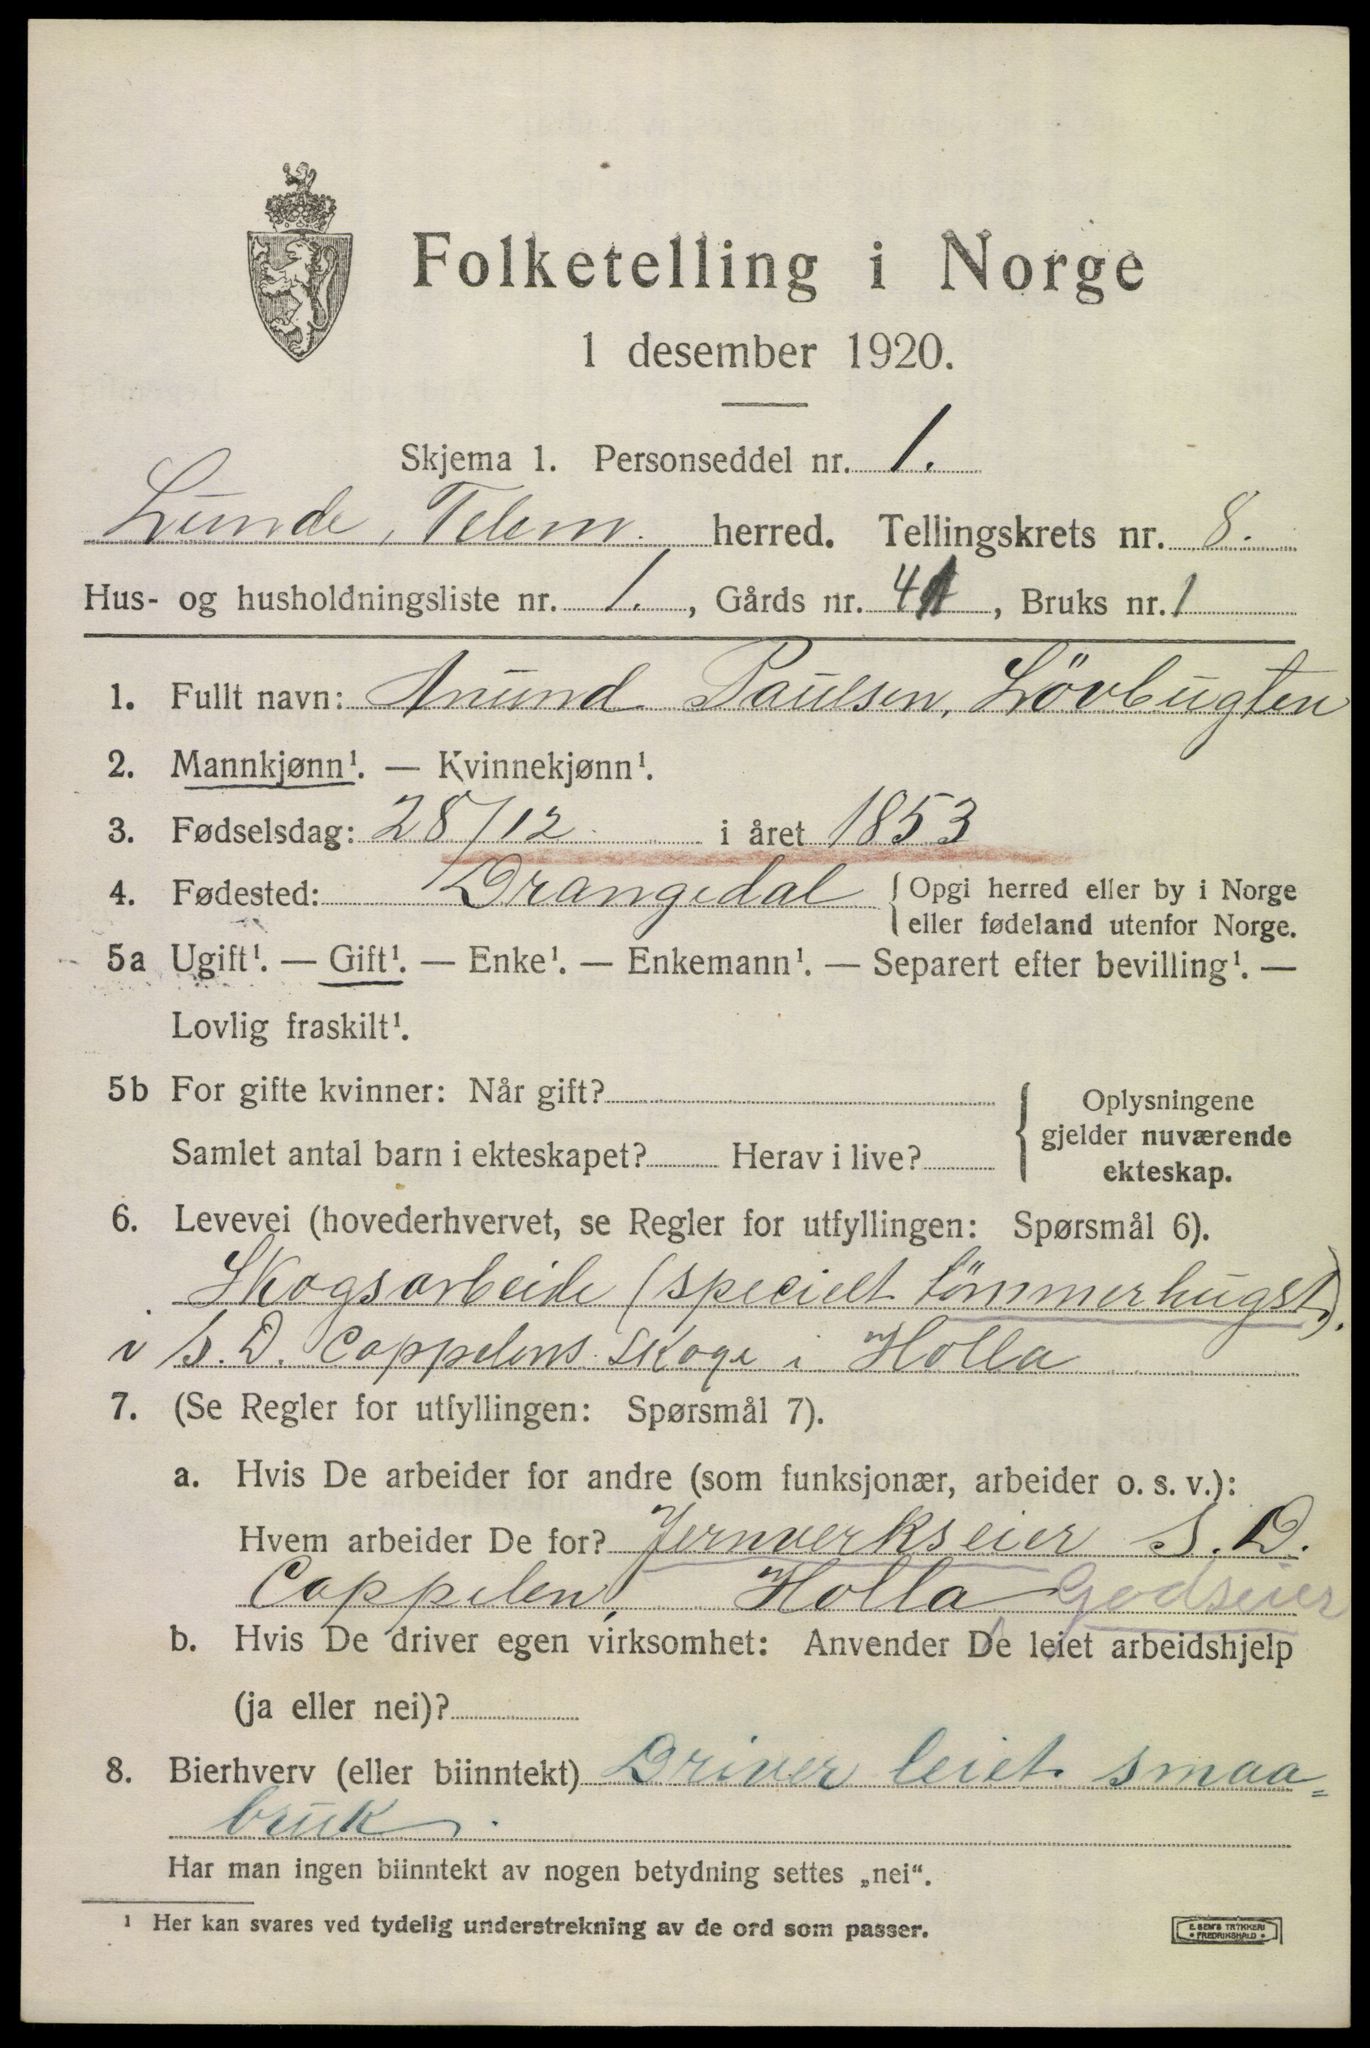 Folketelling i Norge
1 desember 1920.
Skjema 1. Personseddel nr. 1.
Lunde, Telem. herred. Tellingskrets nr. 8.
Hus- og husholdningsliste nr. 1., Gårds nr. 41, Bruks nr. 1
1. Fullt navn: Anund Paulsen, Lövbugten
2. Mannkjønn¹. — Kvinnekjønn¹.
3. Fødselsdag: 28/12 i året 1853
4. Fødested: Drangedal { Opgi herred eller by i Norge
eller fødeland utenfor Norge.
5a Ugift¹. — Gift¹. — Enke¹. — Enkemann¹. — Separert efter bevilling¹. —
Lovlig fraskilt¹.
5b For gifte kvinner: Når gift?
Samlet antal barn i ekteskapet? Herav i live?
Oplysningene
gjelder nuværende
ekteskap.
6. Levevei (hovederhvervet, se Regler for utfyllingen: Spørsmål 6).
Skogsarbeide (specielt tömmerhugst).
i S. D. Cappelens skoge i Holla
7. (Se Regler for utfyllingen: Spørsmål 7).
a. Hvis De arbeider for andre (som funksjonær, arbeider o. s. v.):
Hvem arbeider De for? Jernverkseier S. D.
Cappelen, Holla Godseier
b. Hvis De driver egen virksomhet: Anvender De leiet arbeidshjelp
(ja eller nei)?
8. Bierhverv (eller biinntekt) Driver leiet smaa=
bruk.
Har man ingen biinntekt av nogen betydning settes „nei“.
¹ Her kan svares ved tydelig understrekning av de ord som passer.
E. SEM'S TRYKKERI
• FREDRIKSHALD •